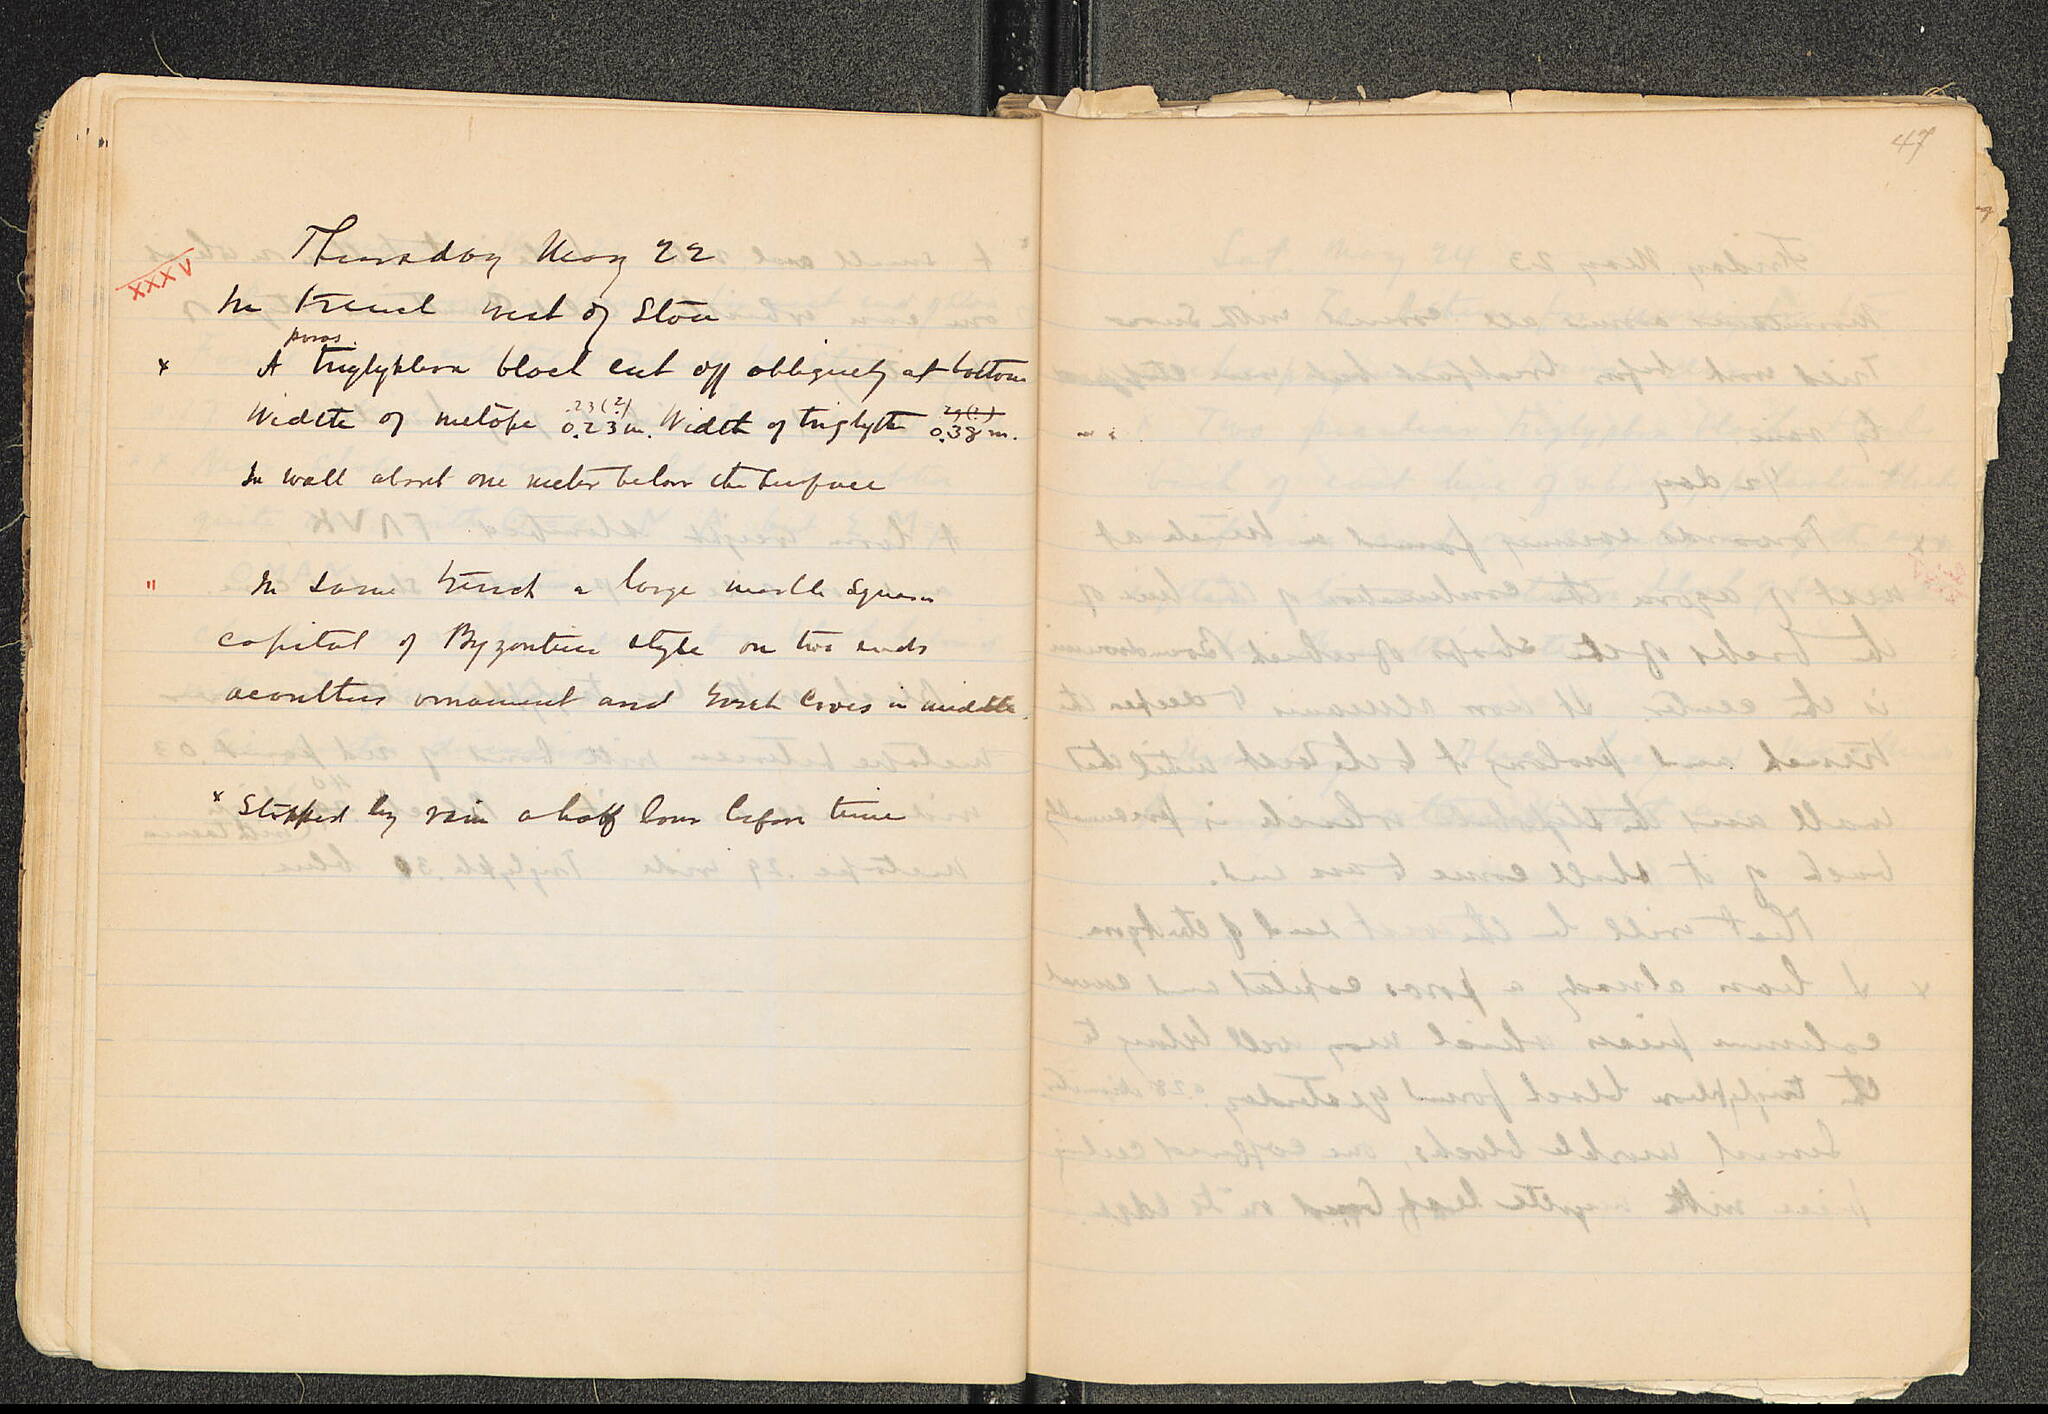 47
Thursday May 22
XXXV
In trench west of Stoa
poros.
x A triglyphon block cut off obliquely at bottom
.23(?) 29(?)
Width of metope 0.23 m. Width of triglyph 0.38 m.
In wall about one meter below the surface
" In same trench a large marble square
capital of Byzantine style on two ends
acanthus ornament and Greek Cross in middle.
x Stopped by rain a half hour before time